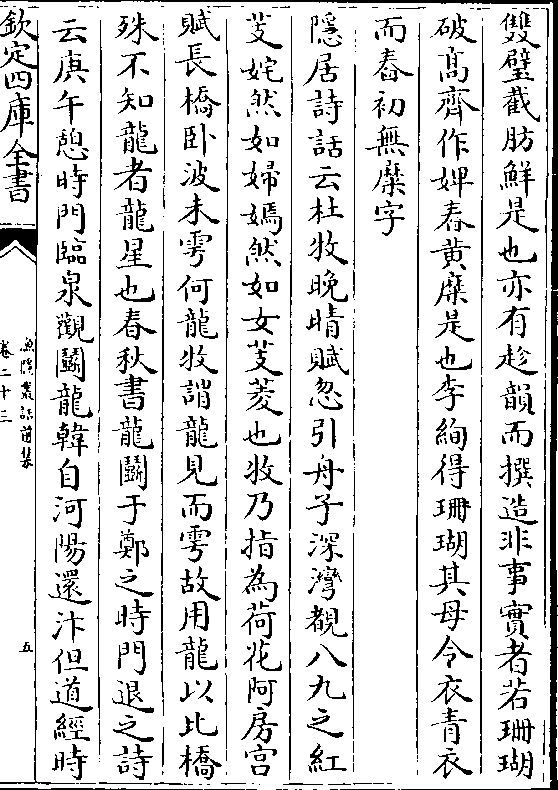 雙璧截肪鮮是也亦有趁韻而撰造非事實者若珊瑚
破髙齊作婢舂黄糜是也李絢得珊瑚其母令衣青衣
而舂初無糜字
隱居詩話云杜牧晚晴賦忽引舟子深灣覩八九之紅
芰姹然如婦嫣然如女芰菱也牧乃指為荷花阿房宫
賦長橋卧波未雩何龍牧誚龍見而雩故用龍以比橋
殊不知龍者龍星也春秋書龍鬭于鄭之時門退之詩
云庚午憩時門臨泉觀鬭龍韓自河陽還汴但道經時
欽定四庫全書
漁隱叢話前集
卷二十三
五